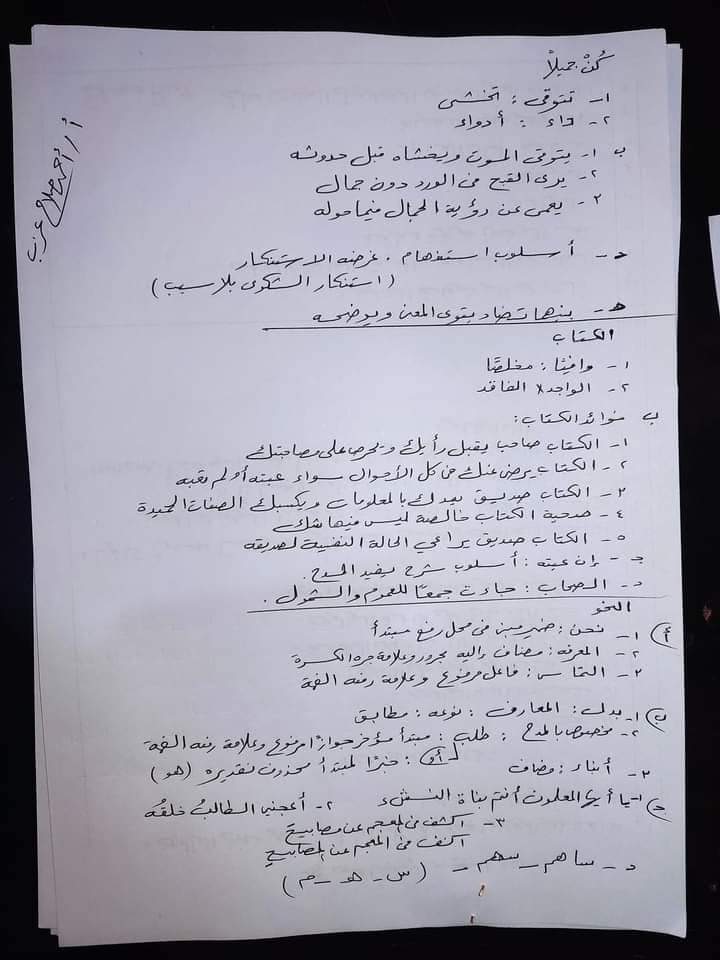 كُنْ جميلاً
١- تتوقى : تخشى
٢- داء : أدواء
ب ١- يتوقى الموت ويخشاه قبل حدوثه
٢- يرى القبح فى الورد دون جمال
٣- يعمى عن رؤية الجمال فيما حوله
ج- أسلوب استفهام . غرضه الاستنكار
(استنكار الشكوى بلا سبب)
د- بينهما تضاد يقوى المعنى ويوضحه
الكتاب
١- وافيًا : مخلصًا
٢- الواجد × الفاقد
ب فوائد الكتاب :
١- الكتاب صاحب يقبل رأيك ويحرص على مصاحبتك
٢- الكتاب يرضى عنك فى كل الأحوال سواء عبته أو لم تعبه
٣- الكتاب صديق يمدك بالمعلومات ويكسبك الصفات الحميدة
٤- صحبة الكتاب خالصة ليس فيها شك
٥- الكتاب صديق يراعي الحالة النفسية لصديقه
ج- إن عبته : أسلوب شرح يفيد
د- الصحاب : جاءت جمعًا للعموم والشمول .
النحو
أ) ١- نحن : ضمير مبنى فى محل رفع مبتدأ
٢- المعرفة : مضاف إليه مجرور وعلامة جره الكسرة
٣- التماس : فاعل مرفوع وعلامة رفعه الضمة
ب) ١- بدل : المعارف : نوعه : مطابق
٢- مخصوصا بالمدح : طلب : مبتدأ مؤخر جوازًا مرفوع وعلامة رفعه الضمة
أو : خبرًا لمبتدأ محذوف تقديره (هو)
٣- أبناء : مضاف
ج) ١- يا أيها المعلمون أنتم بناة النشء ٢- أعجبنى الطالبُ خلقُه
٣- اكشف فى المعجم عن مصابيحَ
اكشف فى المعجم عن المصابيحِ
د- ساهم - سهم - (س - هـ - م)
أ/ أحمد صلاح عزب